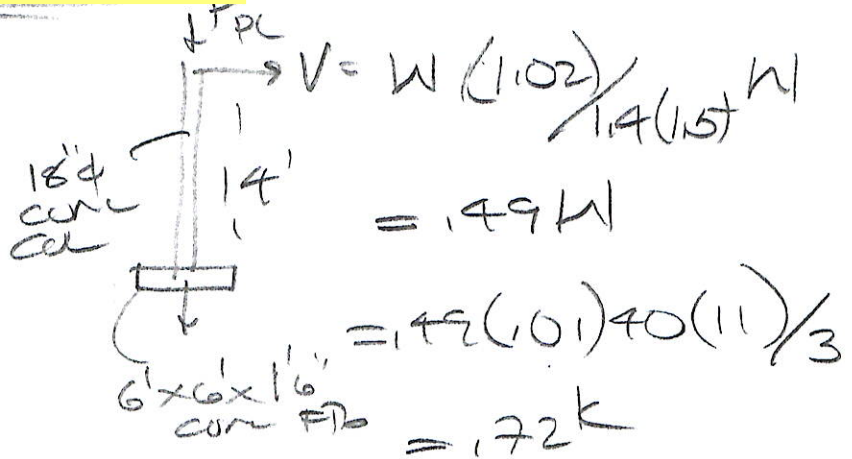 ↓ PDL
→ V = W (1.02)/1.4(1.5) W
18"φ
conc
col
14'
= .49 W
= .49(.01)40(11)/3
6'x6'x1'6"
conc FTG
= .72k